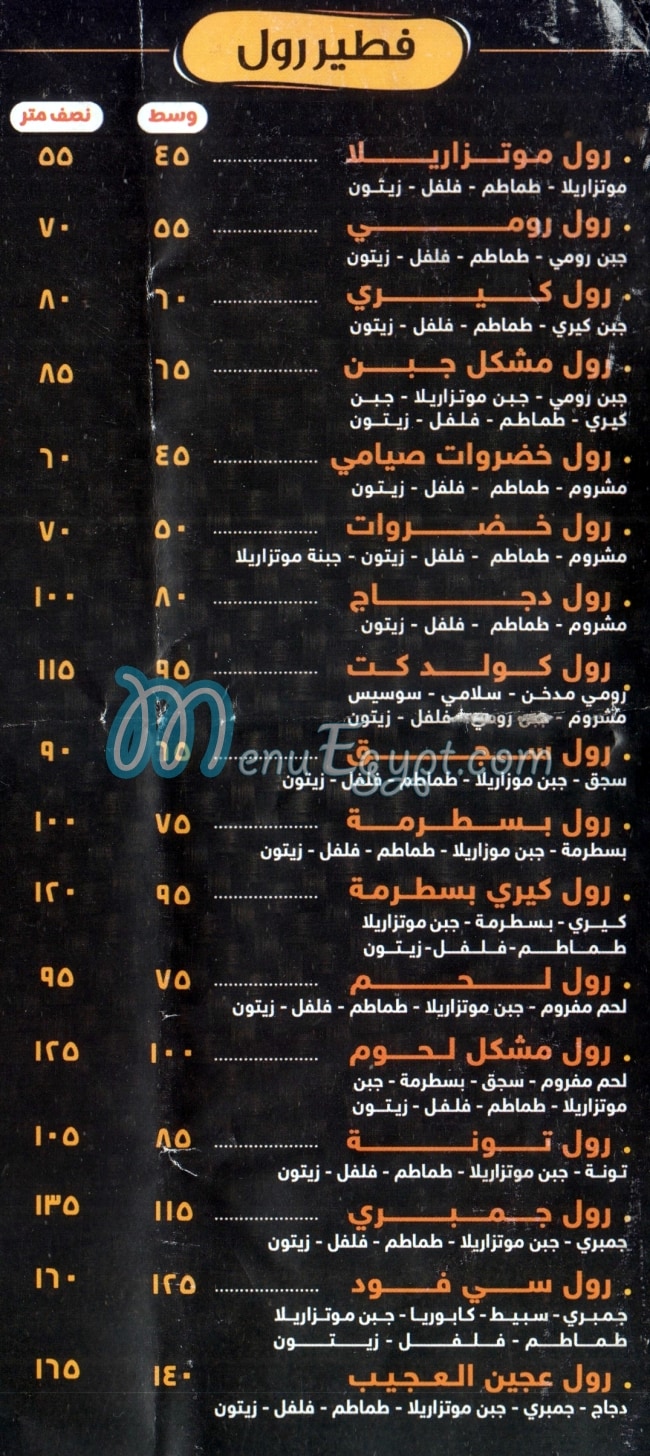 فطير رول
وسط نصف متر
• رول موتزاريلا .......... ٤٥ ٥٥
موتزاريلا - طماطم - فلفل - زيتون
• رول رومي .......... ٥٥ ٧٠
جبن رومي - طماطم - فلفل - زيتون
• رول كيري .......... ٦٠ ٨٠
جبن كيري - طماطم - فلفل - زيتون
• رول مشكل جبن .......... ٦٥ ٨٥
جبن رومي - جبن موتزاريلا - جبن
كيري - طماطم - فلفل - زيتون
• رول خضروات صيامي .......... ٤٥ ٦٠
مشروم - طماطم - فلفل - زيتون
• رول خضروات .......... ٥٠ ٧٠
مشروم - طماطم - فلفل - زيتون - جبنة موتزاريلا
• رول دجاج .......... ٨٠ ١٠٠
مشروم - طماطم - فلفل - زيتون
• رول كولد كت .......... ٩٥ ١١٥
رومي مدخن - سلامي - سوسيس
مشروم - جبن رومي - فلفل - زيتون
• رول سجق .......... ٦٥ ٩٠
سجق - جبن موزاريلا - طماطم - فلفل - زيتون
MenuEgypt.com
• رول بسطرمة .......... ٧٥ ١٠٠
بسطرمة - جبن موزاريلا - طماطم - فلفل - زيتون
• رول كيري بسطرمة .......... ٩٥ ١٢٠
كيري - بسطرمة - جبن موتزاريلا
طماطم - فلفل - زيتون
• رول لحم .......... ٧٥ ٩٥
لحم مفروم - جبن موتزاريلا - طماطم - فلفل - زيتون
• رول مشكل لحوم .......... ١٠٠ ١٢٥
لحم مفروم - سجق - بسطرمة - جبن
موتزاريلا - طماطم - فلفل - زيتون
• رول تونة .......... ٨٥ ١٠٥
تونة - جبن موتزاريلا - طماطم - فلفل - زيتون
• رول جمبري .......... ١١٥ ١٣٥
جمبري - جبن موتزاريلا - طماطم - فلفل - زيتون
• رول سي فود .......... ١٢٥ ١٦٠
جمبري - سبيط - كابوريا - جبن موتزاريلا
طماطم - فلفل - زيتون
• رول عجين العجيب ١٤٠ ١٦٥
دجاج - جمبري - جبن موتزاريلا - طماطم - فلفل - زيتون